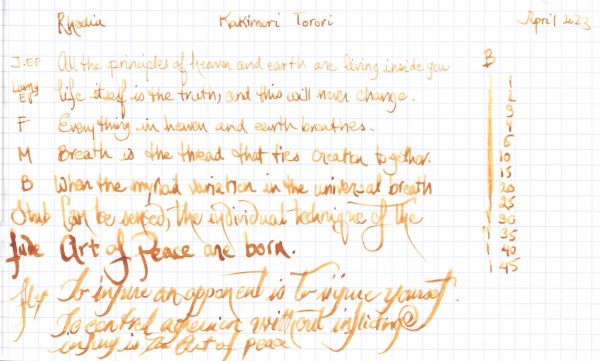 Rhodia Kakimori Torori April 2023
J.EF All the principles of heaven and earth are living inside you B
Lamy EF Life itself is the truth, and this will never change. 1
2
F Everything in heaven and earth breathes. 3
4
M Breath is the thread that ties creation together. 5
10
B When the myriad variation in the universal breath 15
20
Stub Can be sensed, the individual technique of the 25
30
fude Art of Peace are born. 35
40
45
To injure an opponent is to injure yourself.
To control agression without inflicting
injury is The Art of peace